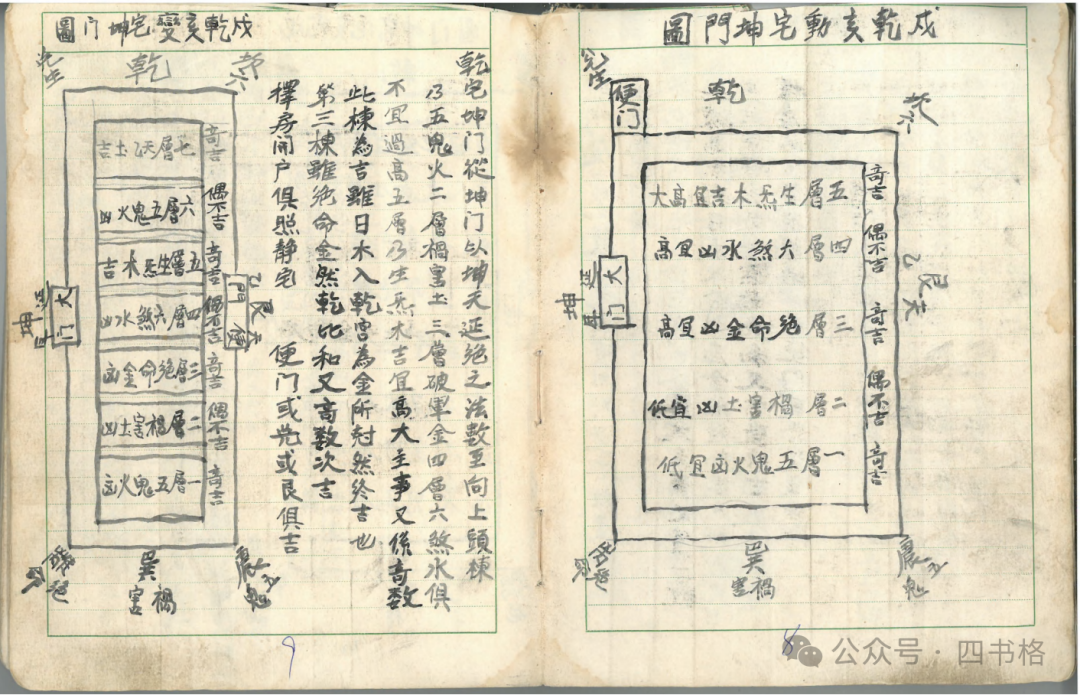 戌乾亥動宅坤門圖
乾
坎六
兌生
便门
五層生炁木吉宜高大
奇吉
四層六煞水凶宜高
偶不吉
三層絕命金凶宜高
奇吉
二層禍害土凶宜低
偶不吉
一層五鬼火凶宜低
奇吉
艮天乙
坤延年
大门
震五鬼
巽
禍害
8
公众号·四书格
戌乾亥變宅坤门圖
乾宅坤门從坤门以坤天延绝之法數至向上頭棟
乃五鬼火二層禍害土三層破軍金四層六煞水俱
不宜過高五層乃生炁木吉宜高大主事又係奇数
此棟為吉雖曰木入乾宮為金所尅然終吉也
第三棟雖绝命金然乾比和又奇数次吉
擇房開户俱照静宅 便门或兑或艮俱吉
乾
坎六
兌生
七層天乙土吉
奇吉
六層五鬼火凶
偶不吉
五層生炁木吉
奇吉
四層六煞水凶
偶不吉
三層绝命金凶
奇吉
二層禍害土凶
偶不吉
一層五鬼火凶
奇吉
艮天乙
便門
坤延年
大门
震五鬼
巽
禍害
9